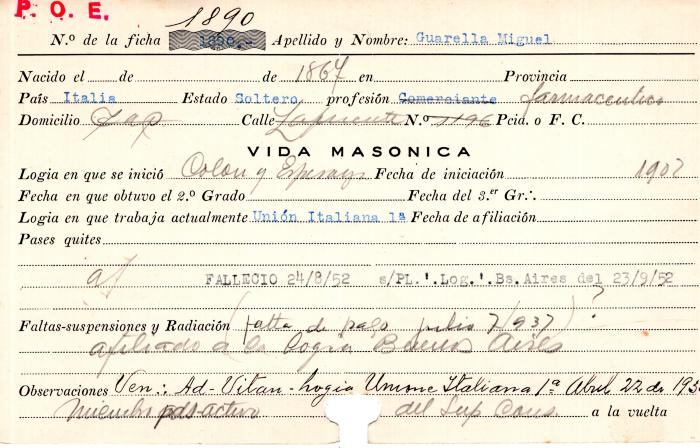 P. O. E.
1890
N.º de la ficha 1890,- Apellido y Nombre: Guarella Miguel
Nacido el de de 1867 en Provincia
País Italia Estado Soltero profesión Comerciante farmaceutico
Domicilio Cap Calle N.º 1196 Pcia. o F. C.
VIDA MASONICA
Logia en que se inició Colon y Fecha de iniciación 1902
Fecha en que obtuvo el 2.º Grado Fecha del 3.er Gr∴
Logia en que trabaja actualmente Unión Italiana 1ª Fecha de afiliación
Pases quites
FALLECIO 24/8/52 s/PL.'.Log.'.Bs.Aires del 23/9/52
Faltas-suspensiones y Radiación (falta de pago julio 7/937) ?
afiliado a la Logia Buenos Aires
Observaciones Ven∴ Ad-Vitan - Logia Unione Italiana 1ª Abril 22 de 193
Miembro activo del Sup Cons. a la vuelta